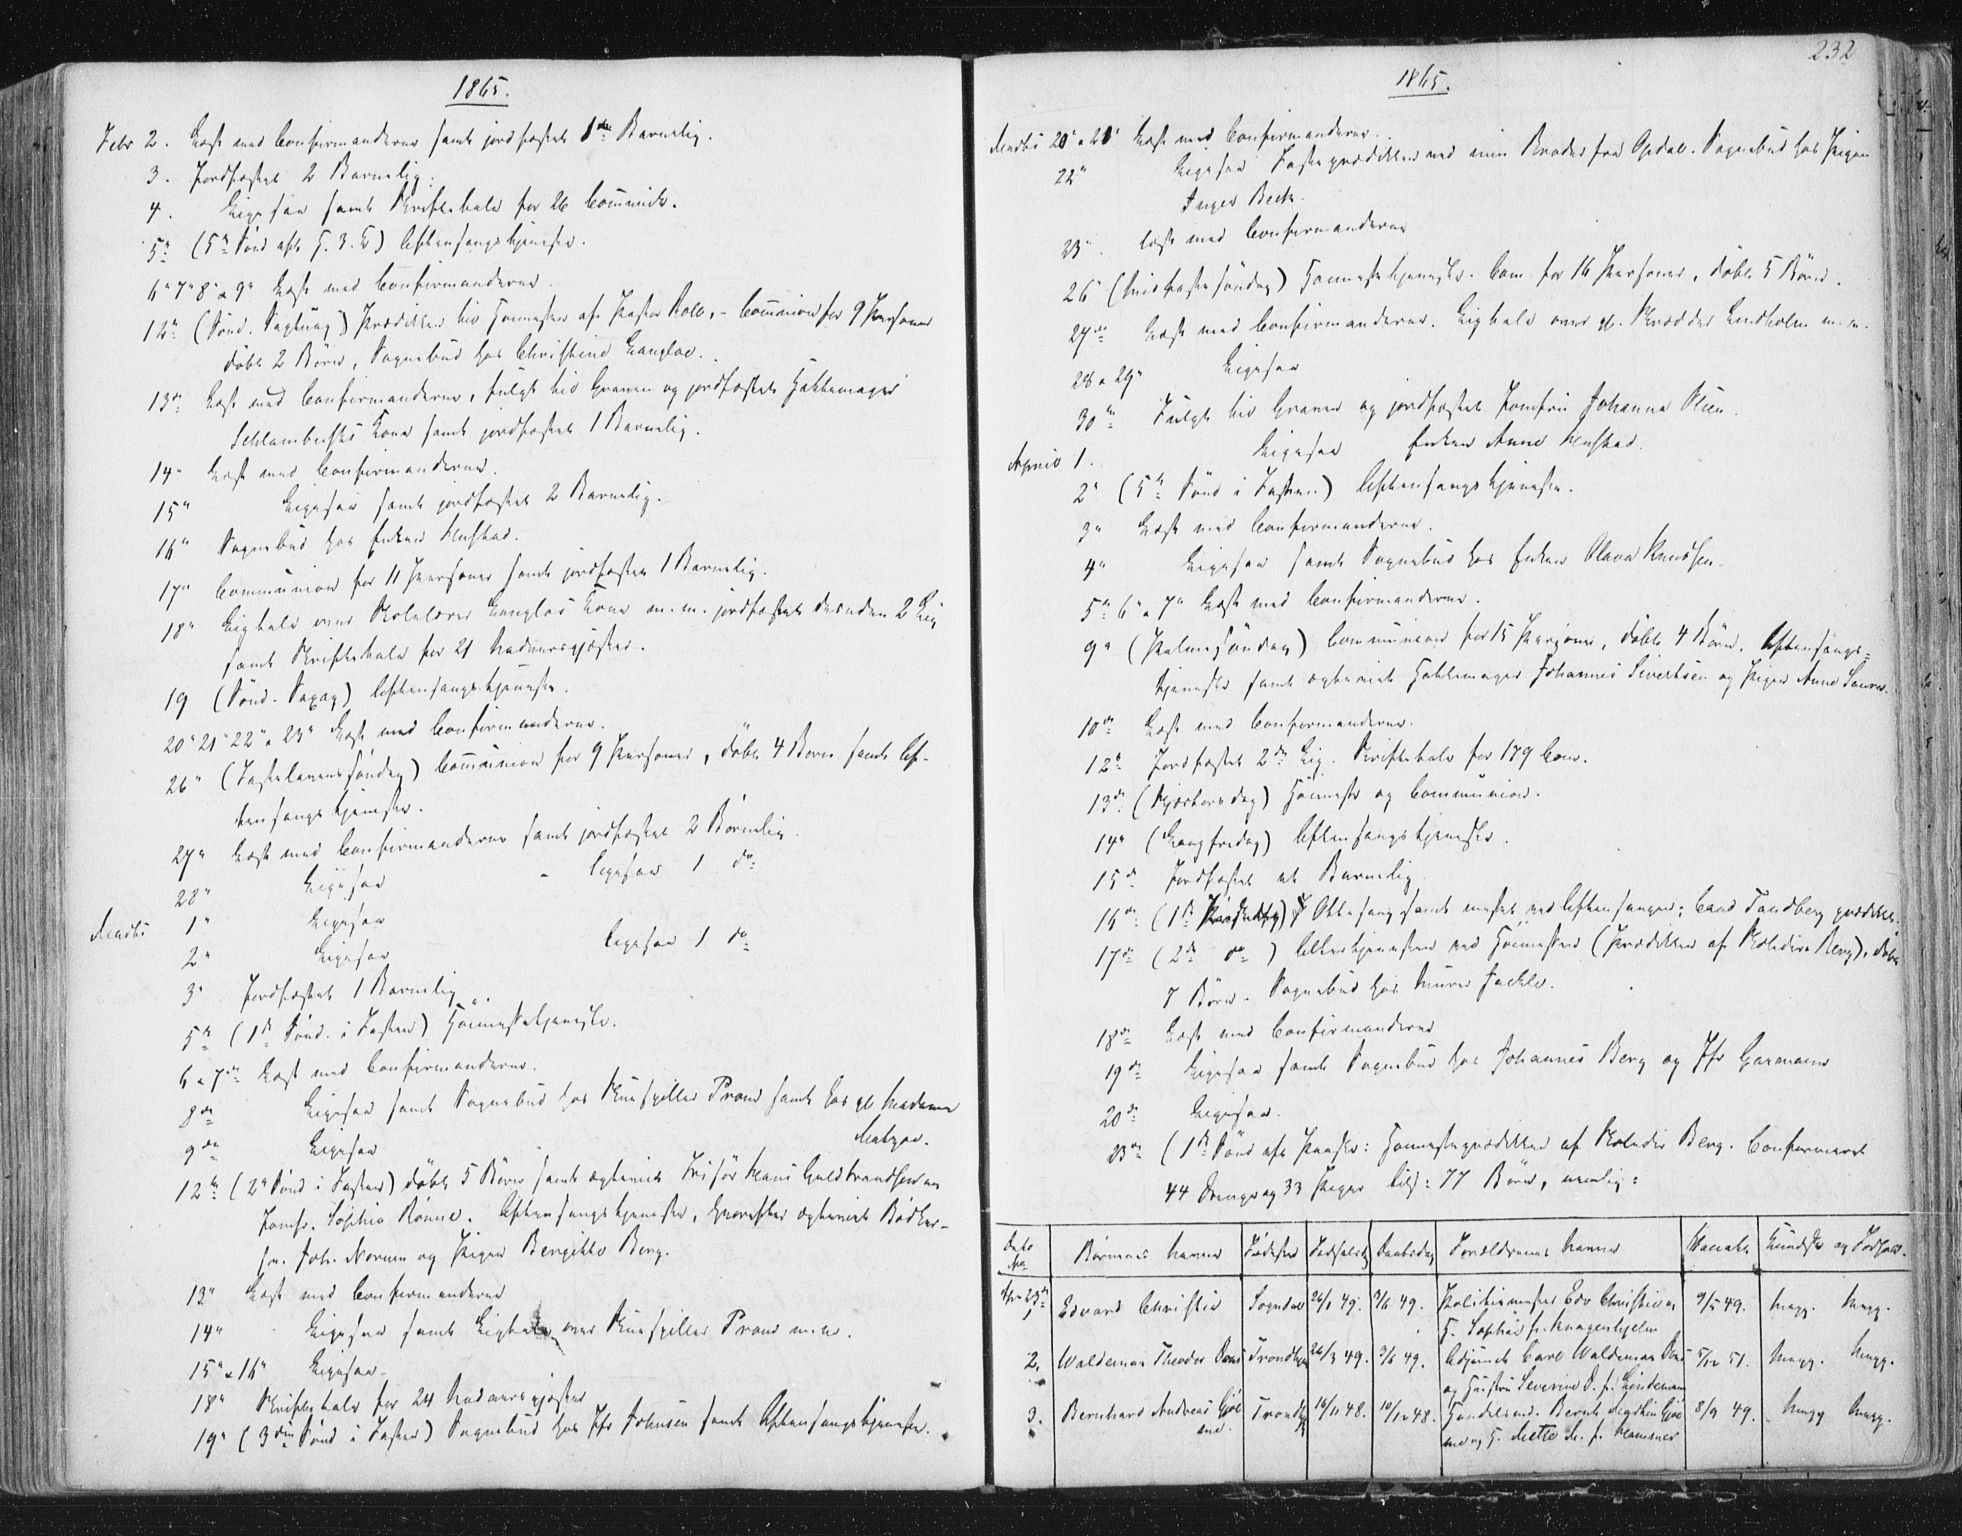 1865.
Febr 2. Læst med Confirmanderne samt jordfæstet 1 Barnelig.
3. Jordfæstet 2 Barnelig.
4. Ligesaa samt Skriftetale for 26 Communic.
5te (5te Sønd. eft. H. 3. K.) Aftensangstjeneste.
6" 7" 8" & 9" Læst med Confirmanderne.
12te (Sønd. Septuag.) Prædiken ved Høimessen af Pastor Roll, - Communion for 9 Personer
døbt 2 Børn, Sognebud hos Christine Langloe.
13de Læst med Confirmanderne, fulgt til Graven og jordfæstet Hattemager
Schlambuschs Kone samt jordfæstet 1 Barnelig.
14" Læst med Confirmanderne.
15" Ligesaa samt jordfæstet 2 Barnelig.
16" Sognebud hos Enken Hustad.
17" Communion for 11 Personer samt jordfæstet 1 Barnelig.
18" Ligtale over Skolelærer Langloes Kone m.m. jordfæstet desuden 2 Lig
samt Skriftetale for 21 Nadvergjæster.
19 (Sønd. Sexag.) Aftensangstjeneste.
20" 21" 22" & 23" Læst med Confirmanderne.
26" (Fastelavenssøndag) Communion for 9 Personer, døbt 4 Børn samt Af-
tensangstjeneste.
27" Læst med Confirmanderne samt jordfæstet 2 Børnelig
28" Ligesaa - ligesaa 1 do
Marts 1" Ligesaa
2" Ligesaa ligesaa 1 do
3" Jordfæstet 1 Barnelig
5te (1ste Sønd. i Fasten) Høimessetjeneste.
6 & 7de Læst med Confirmanderne.
8de Ligesaa samt Sognebud hos Skuespiller Prom samt hos gl. Madame
9de Ligesaa
12te (2" Sønd i Fasten) døbt 5 Børn samt ægteviet Frisør Hans Guldbrandsen og
Jomfr. Sophie Rønne. Aftensangstjeneste, hvorefter ægteviet Bødker-
sv. Joh. Norum og Pigen Bergitte Berg.
13" Læst med Confirmanderne
14" Ligesaa samt Ligtale over Skuespiller Prom m.m.
15" & 16" Ligesaa.
18" Skriftetale for 24 Nadvergjæster
19" (3die Sønd i Fasten) Sognebud hos Jfr Johnsen samt Aftensangstjeneste.
232
1865.
Marts 20" & 21" Læst med Confirmanderne.
22" Ligesaa Fasteprædiken ved min Broder fra Opdal. Sognebud hos Pigen
Inger Beck.
23" læst med Confirmanderne
26" (Midfastesøndag) Høimessetjeneste. Com. for 16 Personer, døbt 5 Børn.
27de Læst med Confirmanderne. Ligtale over gl. Skrædder Lindholm m.m.
28 & 29" Ligesaa
30te Fulgt til Graven og jordfæstet Jomfru Johanna
April 1. Ligesaa Enken Anne Hustad.
2" (5te Sønd i Fasten) Aftensangstjeneste.
3" Læst med Confirmanderne.
4" Ligesaa samt Sognebud hos Enken Olava Knudsen.
5te 6" & 7" Læst med Confirmanderne.
9" (Palmesøndag) Communion for 15 Personer, døbt 4 Børn. Aftensangs-
tjeneste samt ægteviet Hattemager Johannes Sivertsen og Pigen Anne
10de Læst med Confirmanderne.
12te Jordfæstet 2de Lig. Skriftetale for 179 Com.
13de (Skjærtorsdag) Høimesse og Communion.
14" (Langfredag) Aftensangstjeneste.
15de Jordfæstet et Barnelig
16de (1ste Paaskedag) Ottesang samt messet ved Aftensangen; Cand Tandberg prædiket.
17de (2den do) Altertjenesten ved Høimessen (Prædiken af Skoledir. Berg), døbt
7 Børn. Sognebud hos Murer
18de Læst med Confirmanderne
19de Ligesaa samt Sognebud hos Johannes Berg og Jfr Garmann
20de Ligesaa.
23de (1ste Sønd eft Paaske: Høimesseprædiken af Skoledir Berg. Confirmeret
44 Drenge og 33 Piger tils: 77 Børn, nemlig:
Dato No Børnenes Navne Fødested Fødselsdag Daabsdag Forældrenes Navne Vaccine Kundsk. og Forhold.
Apr 23de
1 Edvard Christie Sogndal 26/1 49. 7/6 49. Politimester Edv Christie og H. Sophie f. Knagenhjelm 9/5 49. Megg. Megg.
2. Waldemar Theodor Trondhjem 26/3 49. 3/6 49. Adjunct Carl Waldemar og Hustru Severine D. f. Lindeman 5/12 51. Megg. Megg.
3. Bernhard Andreas Trondhj 16/11 48. 10/12 48. Handelsmd. Bernt og H. Mette M. f. Hammer 8/9 49. Megg Megg.